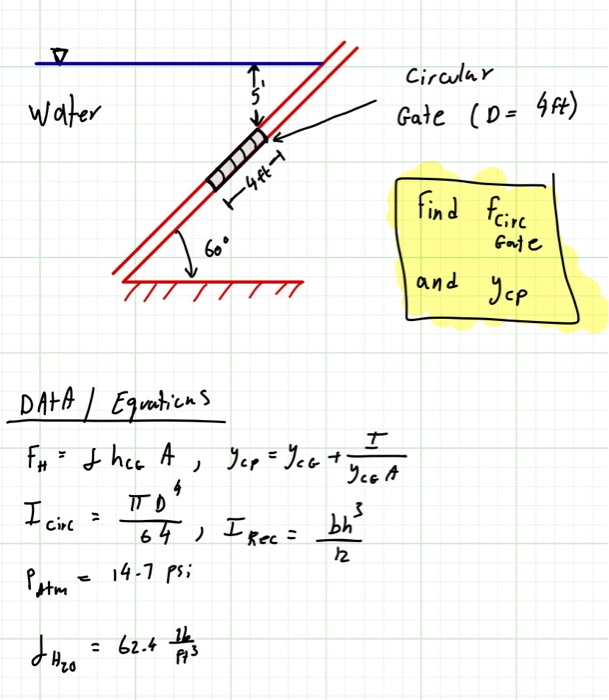 Water
5'
Circular
Gate (D = 4ft)
4ft
60°
Find Fcirc
Gate
and ycp
DATA / Equations
F_H = γ h_CG A , y_CP = y_CG + I / (y_CG A)
I_circ = πD⁴ / 64 , I_Rec = bh³ / 12
P_Atm = 14.7 psi
γ_H2O = 62.4 lb / ft³